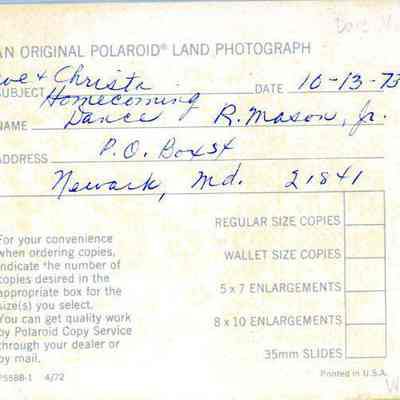 AN ORIGINAL POLAROID® LAND PHOTOGRAPH
& Christa
SUBJECT Homecoming DATE 10-13-73
NAME Dance R. Mason, Jr.
ADDRESS P.O. Box
Newark, Md. 21841
REGULAR SIZE COPIES
For your convenience
when ordering copies,
indicate the number of
copies desired in the
appropriate box for the
size(s) you select.
You can get quality work
by Polaroid Copy Service
through your dealer or
by mail.
WALLET SIZE COPIES
5 x 7 ENLARGEMENTS
8 x 10 ENLARGEMENTS
35mm SLIDES
P558B-1 4/72
Printed in U.S.A.